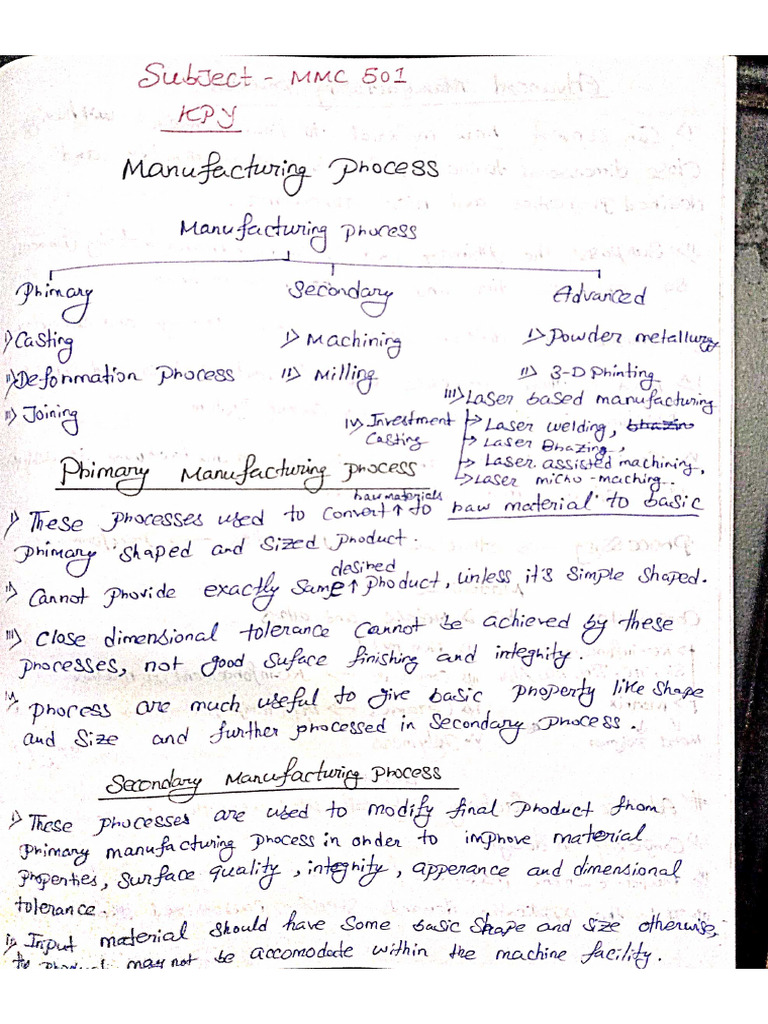 Subject - MMC 501
KPY
Manufacturing Process
Manufacturing Process
Primary Secondary Advanced
i) Casting i) Machining i) Powder metallurgy
ii) Deformation Process ii) Milling ii) 3-D Printing
iii) Joining iii) Laser based manufacturing
iv) Investment Casting
→ Laser welding, brazin
→ Laser Brazing,
→ Laser assisted machining,
→ Laser micro-maching.
Primary Manufacturing process
i) These processes used to convert ↑ raw materials to raw material to basic
primary shaped and sized product.
ii) Cannot provide exactly same ↑ desired product, unless it's simple shaped.
iii) Close dimensional tolerance cannot be achieved by these
processes, not good suface finishing and integrity.
iv) process are much useful to give basic property like shape
and size and further processed in secondary process.
Secondary Manufacturing process
i) These processes are used to modify final product from
primary manufacturing process in order to improve material
properties, surface quality, integrity, apperance and dimensional
tolerance
ii) Input material should have some basic shape and size otherwise,
product may not be accomodate within the machine facility.